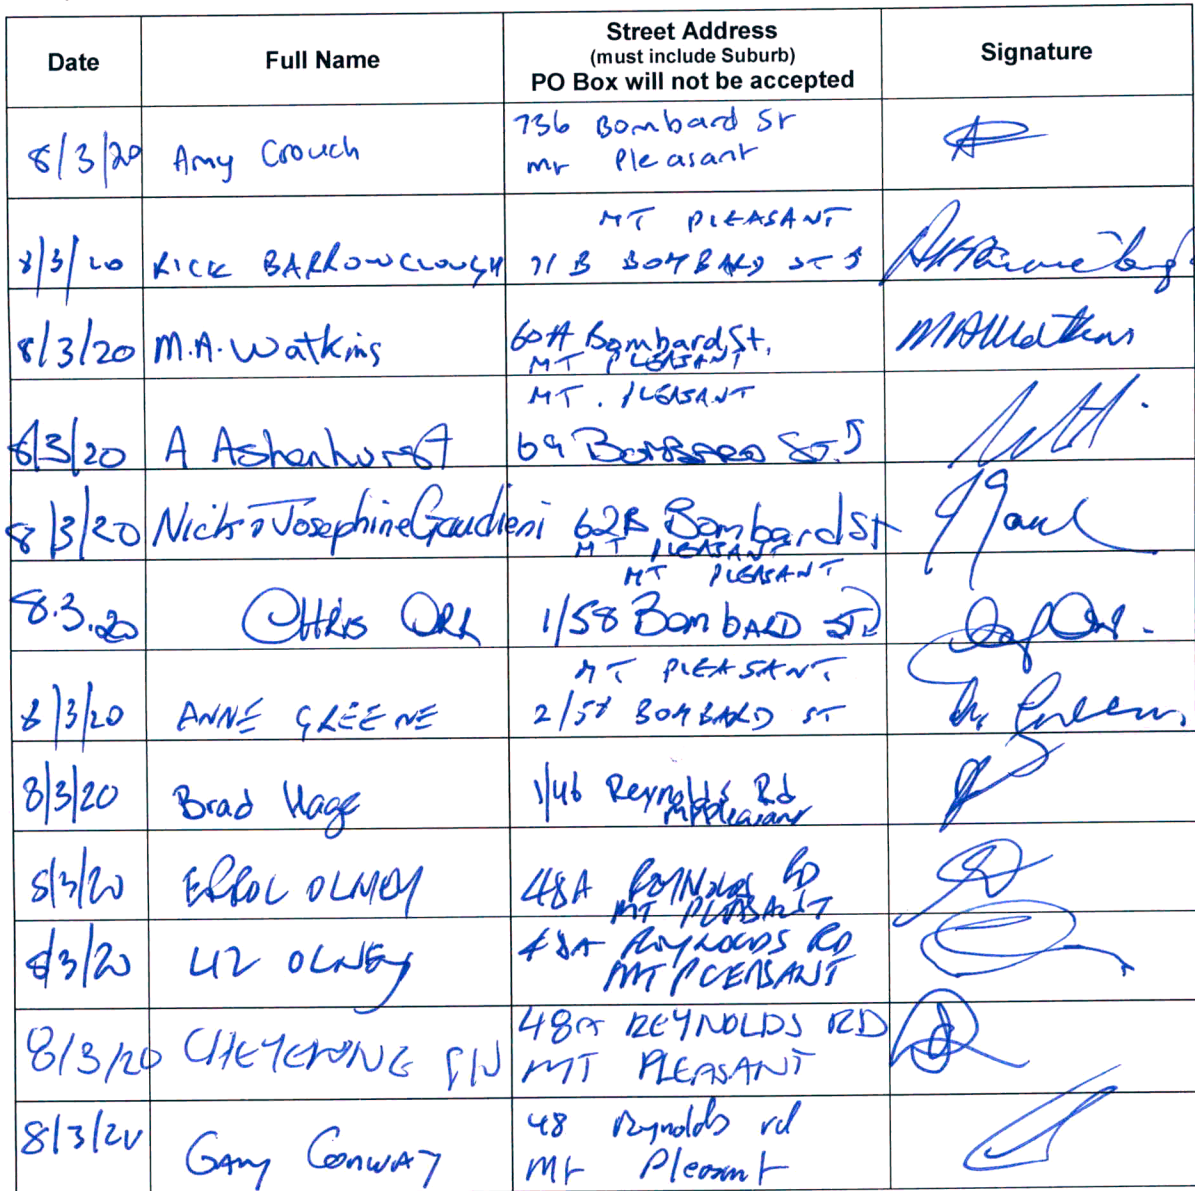 Date Full Name Street Address (must include Suburb) PO Box will not be accepted Signature
8/3/20 Amy Crouch 73b Bombard St
Mt Pleasant
MT PLEASANT
8/3/20 RICK BARROWCLOUGH 71 B BOMBARD ST
8/3/20 M.A. Watkins 60A Bombard St, MAWatkins
MT PLEASANT
MT. PLEASANT
8/3/20 A Ashenhurst 69 Bombard St
8/3/20 Nick & Josephine Gaudieni 62B Bombard St
MT PLEASANT
MT PLEASANT
8.3.20 CHRIS ORR 1/58 BOMBARD ST
MT PLEASANT
8/3/20 ANNE GREENE 2/58 BOMBARD ST
8/3/20 Brad Hage 1/46 Reynolds Rd
Mt Pleasant
8/3/20 ERROL OLNEY 48A REYNOLDS RD
MT PLEASANT
8/3/20 LIZ OLNEY 48A REYNOLDS RD
MT PLEASANT
8/3/20 48A REYNOLDS RD
MT PLEASANT
8/3/20 Gary Conway 48 Reynolds rd
Mt Pleasant